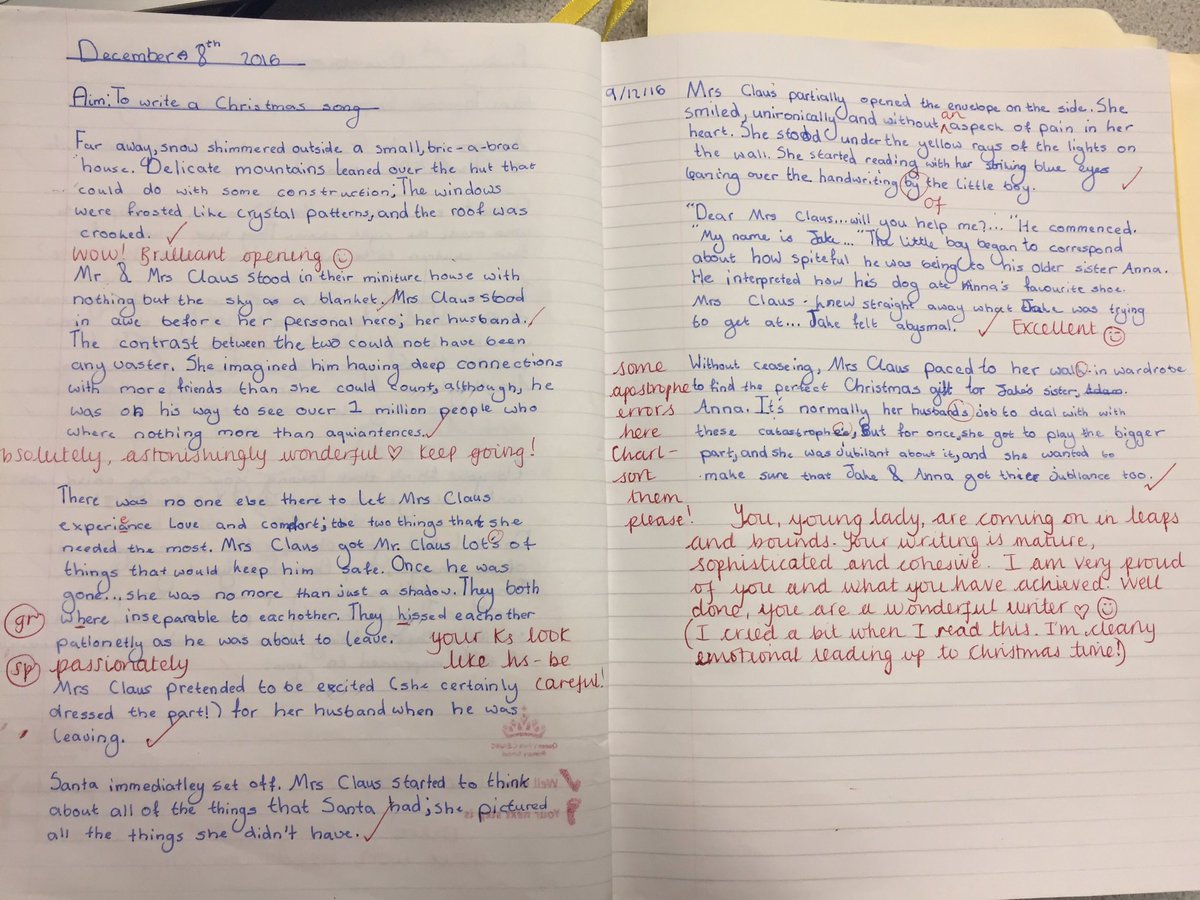 December 8th 2016
Aim: To write a Christmas song
Far away, snow shimmered outside a small, bric-a-brac
house. Delicate mountains leaned over the hut that
could do with some construction; The windows
were frosted like crystal patterns, and the roof was
crooked.
Wow! Brilliant opening
Mr. & Mrs Claus stood in their miniture house with
nothing but the sky as a blanket. Mrs Claus stood
in awe before her personal hero; her husband.
The contrast between the two could not have been
any vaster. She imagined him having deep connections
with more friends than she could count, although, he
was on his way to see over 1 million people who
where nothing more than aquiantences.
bsolutely, astonishingly wonderful ♡ keep going!
There was no one else there to let Mrs Claus
experiance love and comfort; the two things that she
e
needed the most. Mrs Claus got Mr. Claus lot's of
things that would keep him safe. Once he was
gone... she was no more than just a shadow. They both
gr
where inseparable to eachother. They hissed eachother
pationetly as he was about to leave.
your Ks look
like hs - be
careful!
sp
passionately
Mrs Claus pretended to be excited (she certainly
dressed the part!) for her husband when he was
leaving.
Santa immediatley set off. Mrs Claus started to think
about all of the things that Santa had; she pictured
all the things she didn't have.
Well
Your next step is
9/12/16
Mrs Claus partially opened the envelope on the side. She
smiled, unironically and without aspech of pain in her
an
heart. She stood under the yellow rays of the lights on
the wall. She started reading with her striking blue eyes
leaning over the handwriting by the little boy.
of
"Dear Mrs Claus... will you help me?..." He commenced.
"My name is Jake..." The little boy began to correspond
about how spiteful he was being to his older sister Anna.
He interpreted how his dog ate Anna's favourite shoe.
Mrs Claus knew straight away what Jake was trying
to get at... Jake felt abysmal.
Excellent
some
apostrophe
errors
here
Charl-
sort
them
please!
Without ceaseing, Mrs Claus paced to her walk-in wardrobe
to find the perfect Christmas gift for Jake's sister,
Anna. It's normally her husband's job to deal with with
these catastrophe's, But for once, she got to play the bigger
part, and she was Jubilant about it, and she wanted to
make sure that Jake & Anna got thier jubliance too.
You, young lady, are coming on in leaps
and bounds. Your writing is mature,
sophisticated and cohesive. I am very proud
of you and what you have achieved. Well
done, you are a wonderful writer ♡
(I cried a bit when I read this. I'm clearly
emotional leading up to Christmas time!)